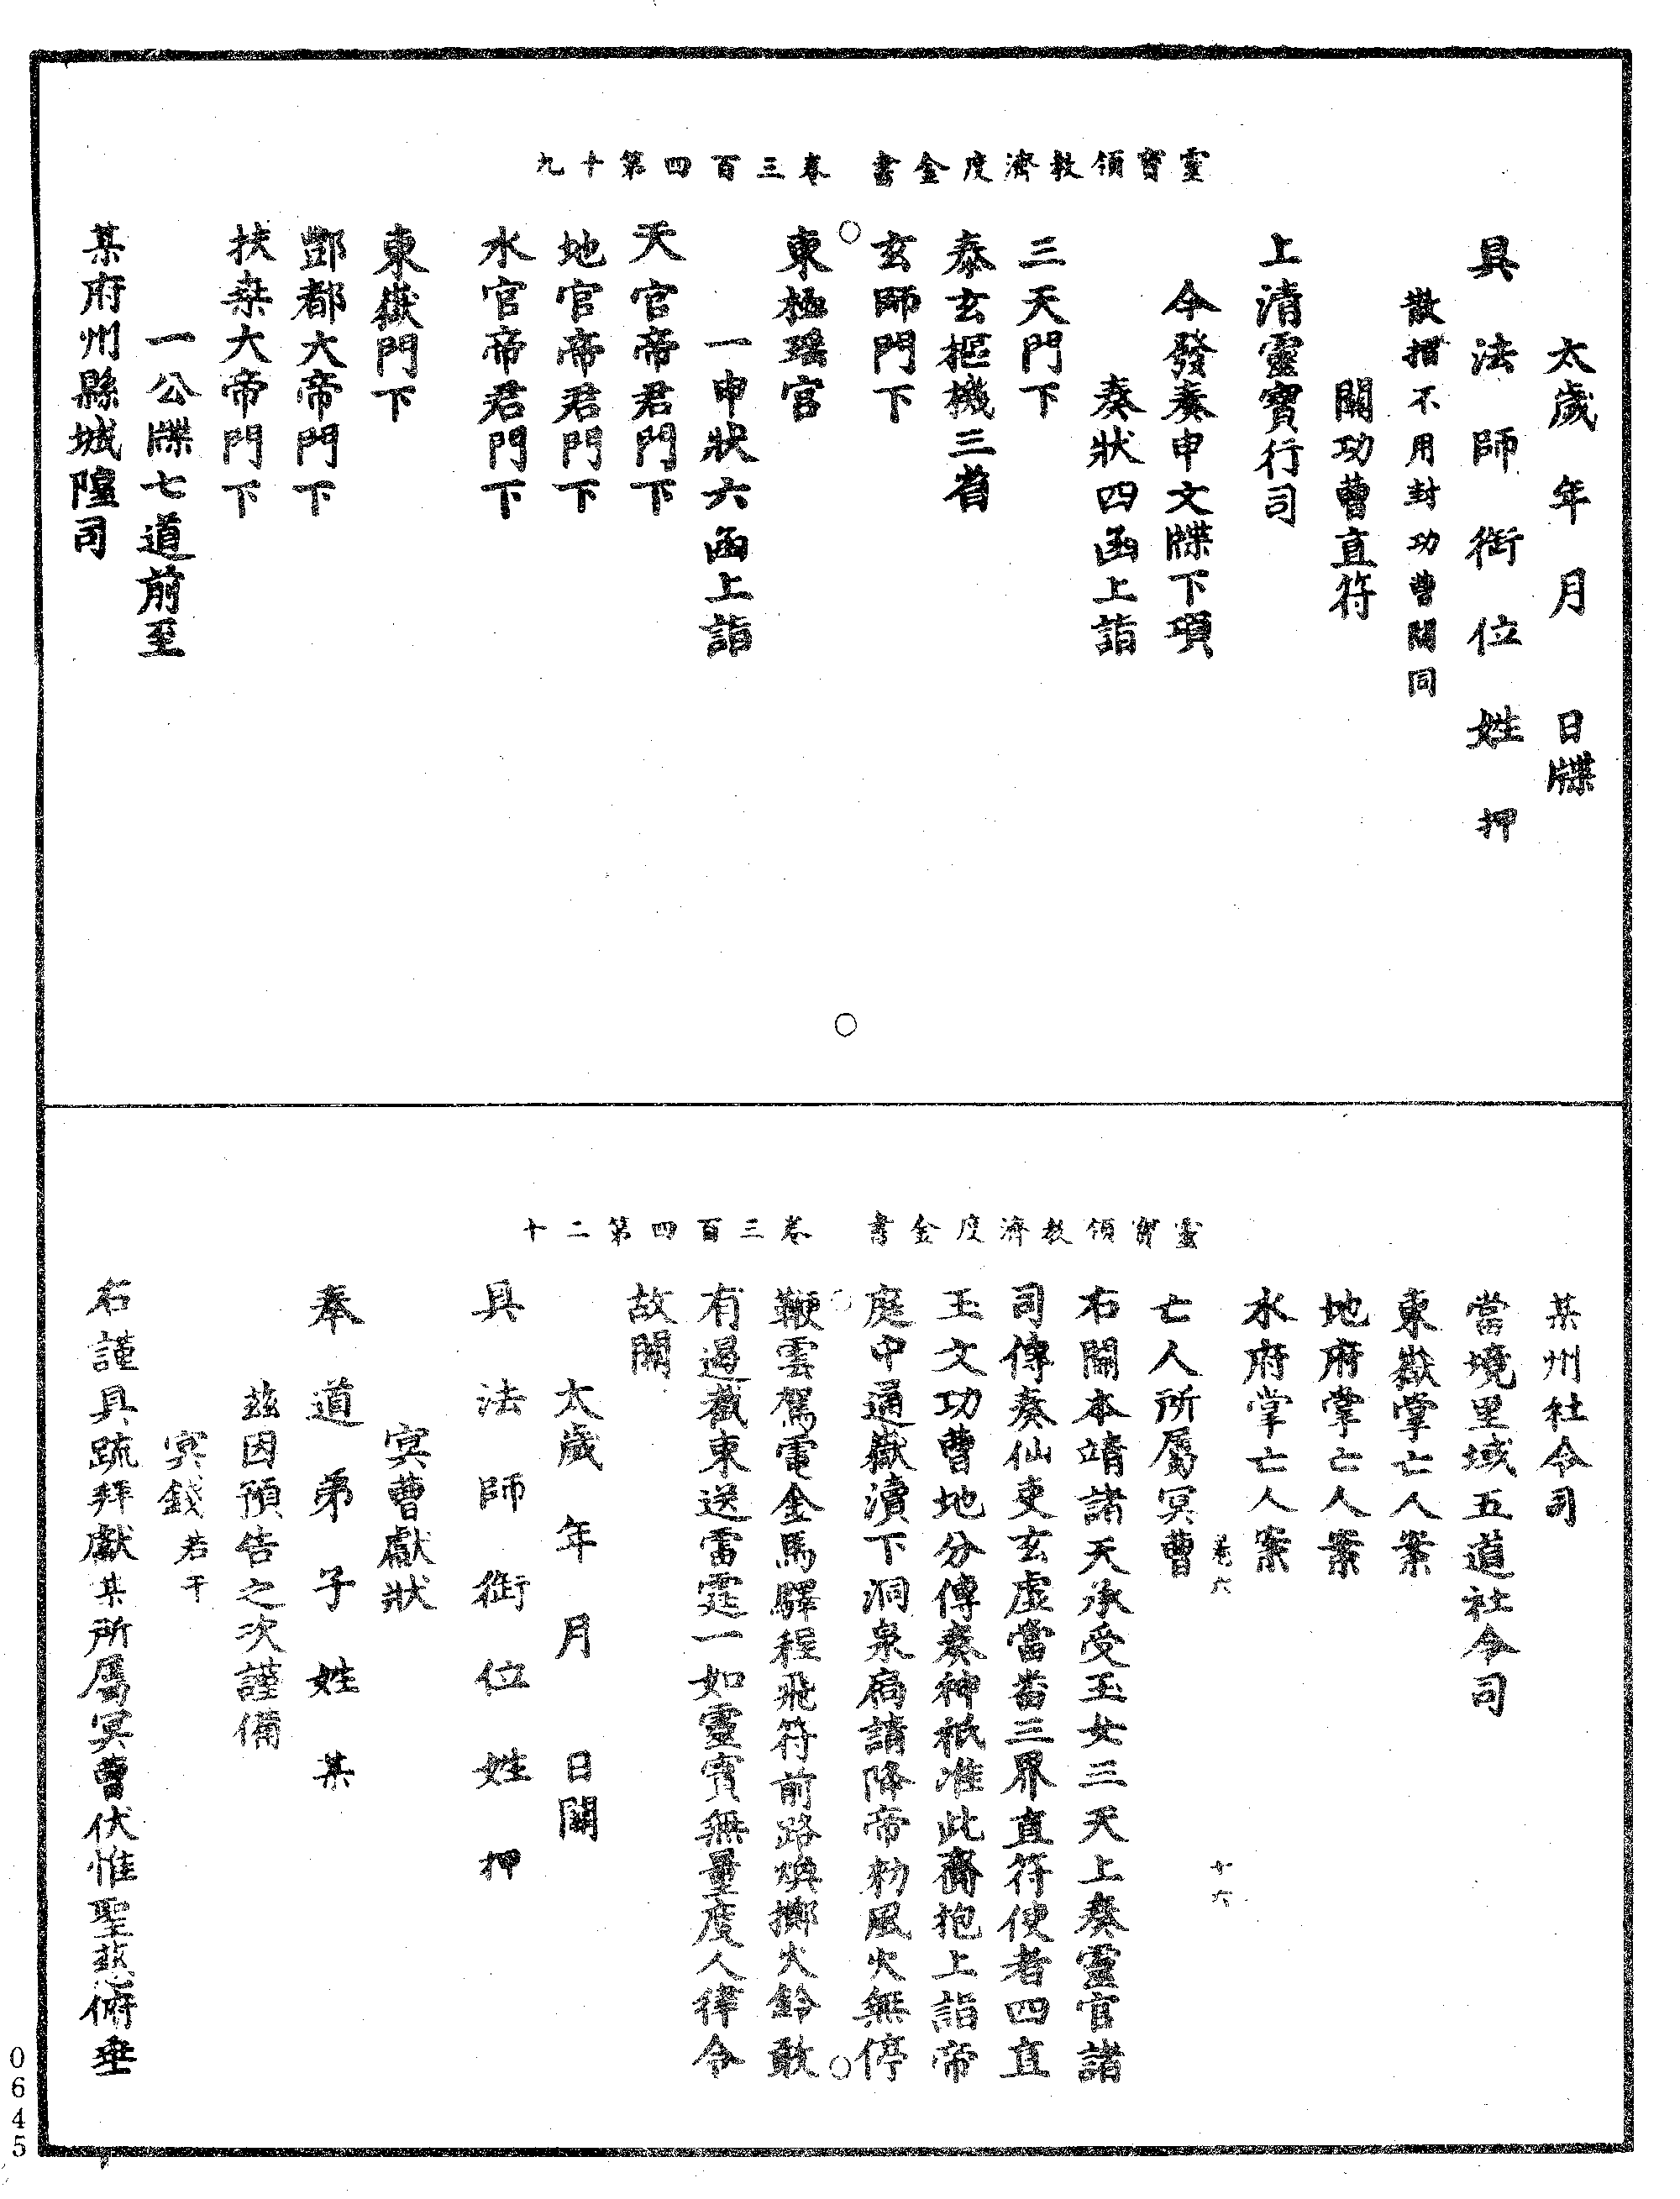 靈寶領教濟度金書　卷三百四第十九
太歲　年　月　日牒
具法師銜位姓押
散摺不用封功曹關同
關功曹直符
上清靈寶行司
今發奏申文牒下項
奏狀四函上詣
三天門下
泰玄摳機三省
玄師門下
東極瑶宮
一申狀六函上詣
天官帝君門下
地官帝君門下
水官帝君門下
東嶽門下
酆都大帝門下
扶桒大帝門下
一公牒七道前至
某府州縣城隍司
靈寶領教濟度金書　卷三百四第二十
某州社令司
當境里域五道社令司
東嶽掌亡人案
地府掌亡人案
水府掌亡人案
卷六　十六
亡人所屬冥曹
右關本靖諸天承受玉女三天上奏靈官諸
司傳奏仙吏玄虛當番三界直符使者四直
玉文功曹地分傳奏神祇准此齎抱上詣帝
庭中通嶽瀆下洞泉扃請降帝勑風火無停
鞭雲駕電金馬驛程飛符前路煥擲火鈴敢
有遏截束送雷霆一如靈寶無量度人律令
故關
太歲　年　月　日關
具法師銜位姓押
冥曹獻狀
奉道弟子姓某
玆因預告之次謹備
冥錢若干
右謹具疏拜獻某所屬冥曹伏惟聖慈俯垂
0645